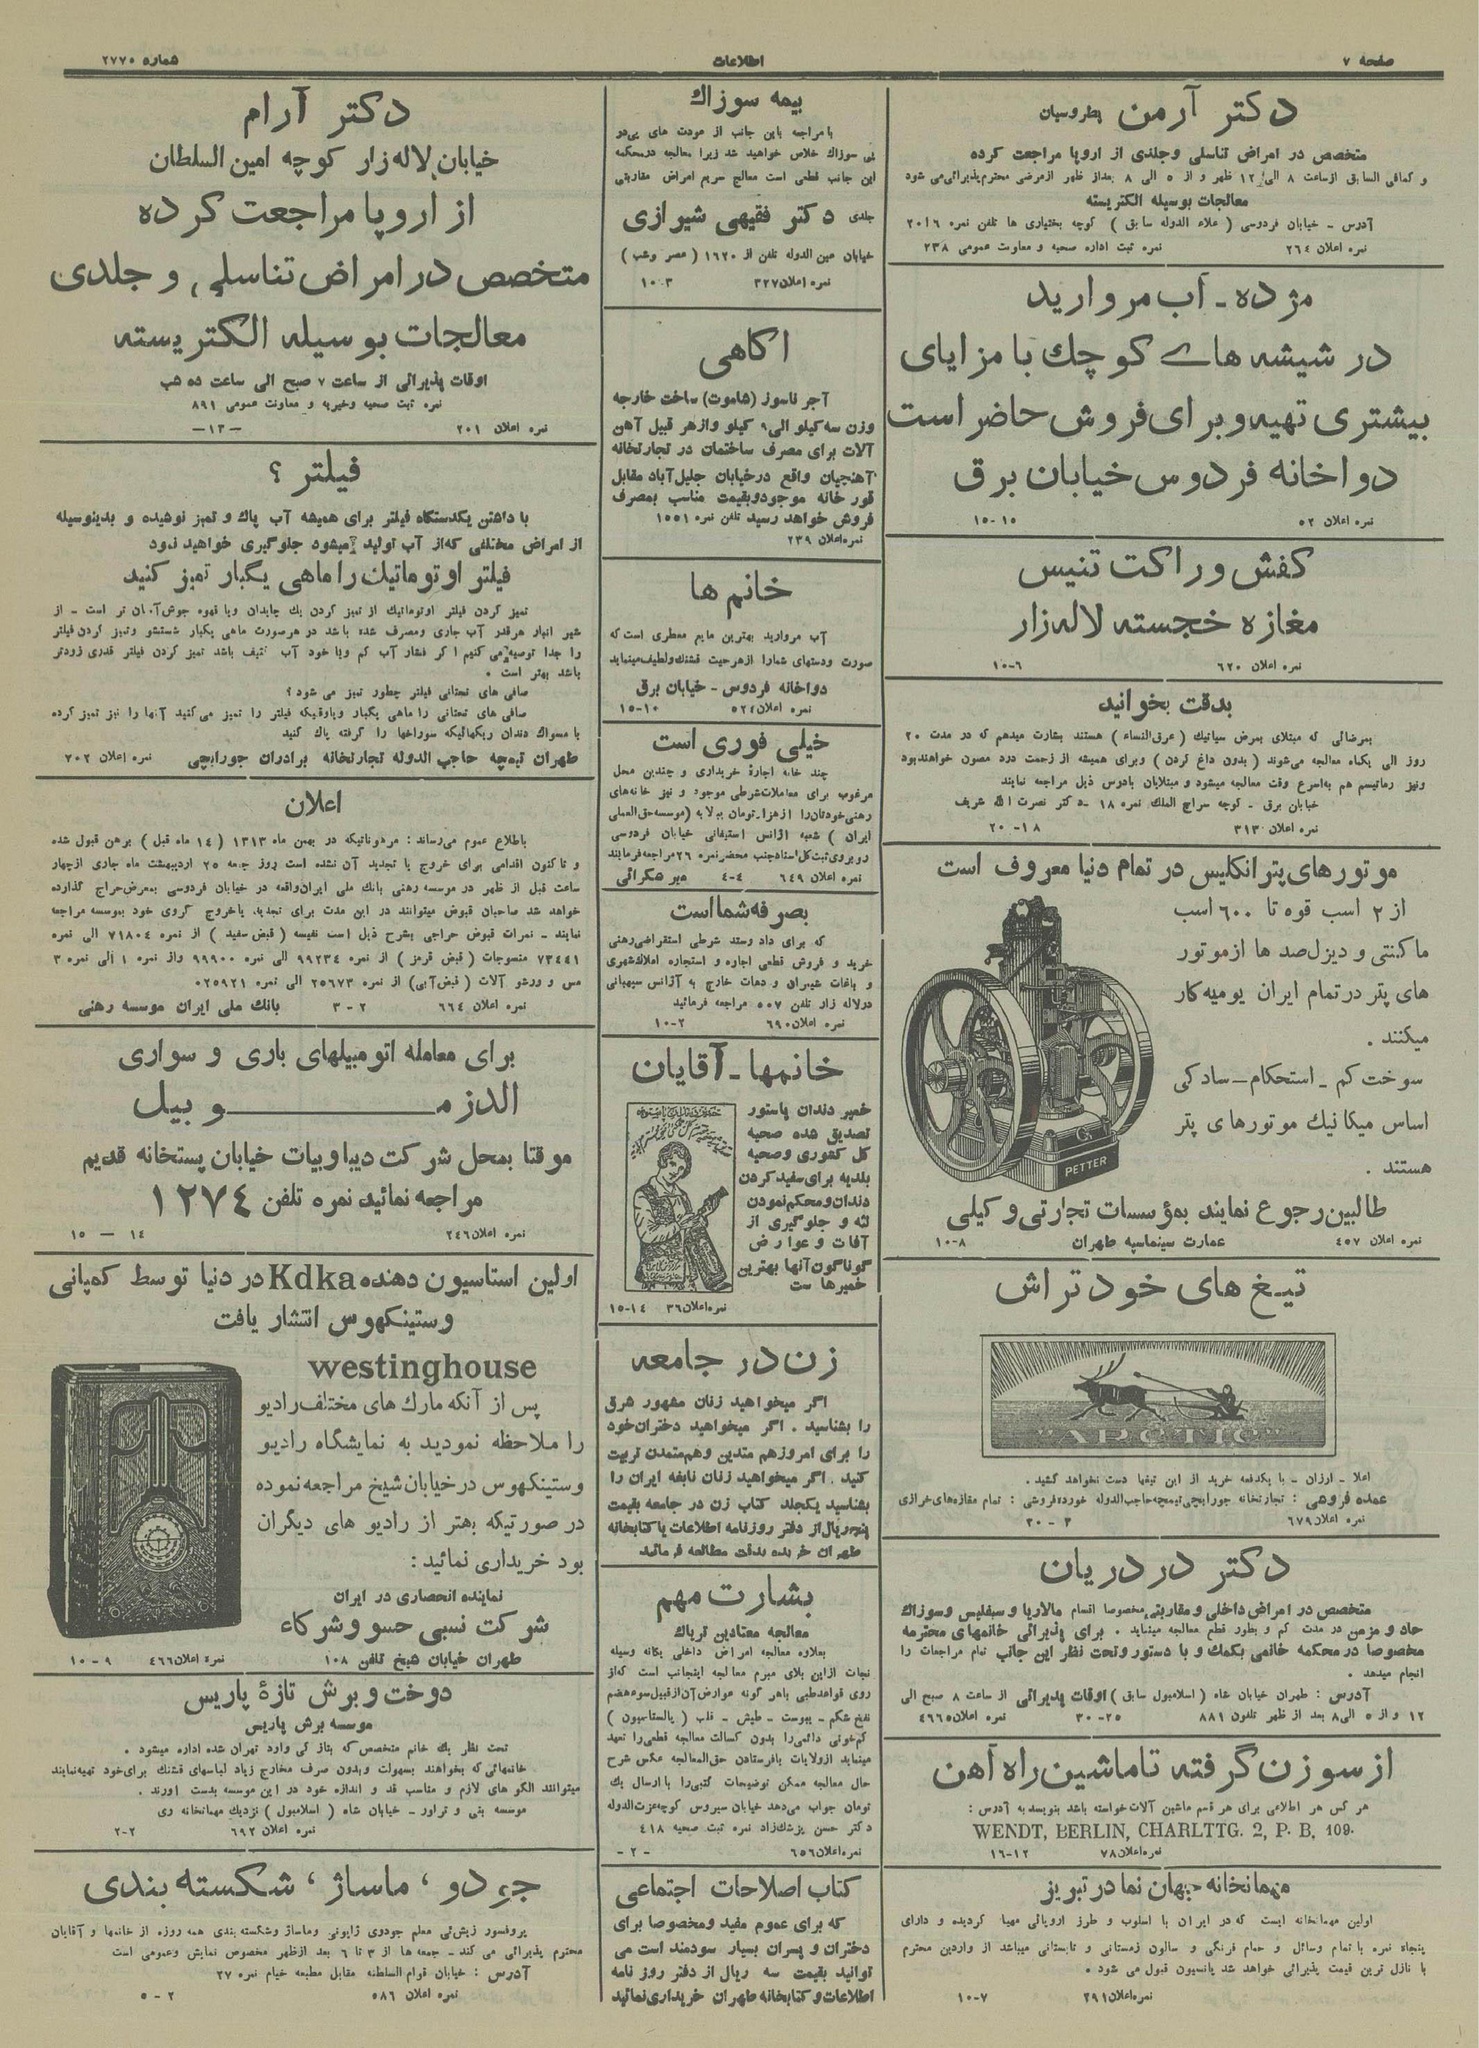 صفحه ۷
اطلاعات
شماره ۲۷۷۰
دکتر آرمن بطروسیان
متخصص در امراض تناسلی وجلدی از اروپا مراجعت کرده
و کمافی السابق ازساعت ۸ الی ۱۲ ظهر و از ۵ الی ۸ بعداز ظهر ازمرضی محترم پذیرائی می شود
معالجات بوسیله الکتریسته
آدرس - خیابان فردوسی ( علاء الدوله سابق ) کوچه بختیاری ها تلفن نمره ۲۰۱۶
نمره اعلان ۲۶۴ نمره ثبت اداره صحیه و معاونت عمومی ۲۳۸
مژده - آب مروارید
در شیشه های کوچك با مزایای
بیشتری تهیه و برای فروش حاضر است
دواخانه فردوس خیابان برق
نمره اعلان ۵۲ ۱۵-۱۵
کفش و راکت تنیس
مغازه خجسته لاله زار
نمره اعلان ۶۲۰ ۱۰-۶
بدقت بخوانید
بمرضائی که مبتلای بمرض سیاتیك ( عرق النساء ) هستند بشارت میدهم که در مدت ۲۰
روز الی یکماه معالجه می‌شوند ( بدون داغ کردن ) وبرای همیشه از زحمت درد مصون خواهندبود
ونیز رماتیسم هم به‌اسرع وقت معالجه میشود و مبتلایان بادرس ذیل مراجعه نمایند
خیابان برق - کوچه سراج الملك نمره ۱۸ - دکتر نصرت الله شریف
نمره اعلان ۳۱۳ ۲۰-۱۸
موتورهای پتر انکلیس در تمام دنیا معروف است
از ۲ اسب قوه تا ۶۰۰ اسب
ماکنتی و دیزل صد ها ازموتور
های پتر در تمام ایران یومیه کار
میکنند .
سوخت کم - استحکام - سادکی
اساس میکانیك موتورهای پتر
هستند .
PETTER
طالبین رجوع نمایند بمؤسسات تجارتی وکیلی
نمره اعلان ۴۵۷ عمارت سینماسپه طهران ۱۰-۸
تیغ های خود تراش
"ARCTIC"
اعلا - ارزان - با یکدفعه خرید از این تیغها دست نخواهد کشید .
عمده فروشی : تجارتخانه جورابچی تیمچه حاجب الدوله خورده فروشی : تمام مغازه‌های خرازی
نمره اعلان ۶۷۹ ۳-۲۰
دکتر در دریان
متخصص در امراض داخلی و مقاربتی مخصوصا اقسام مالاریا و سفلیس و سوزاك
حاد و مزمن در مدت کم و بطور قطع معالجه مینماید . برای پذیرائی خانمهای محترمه
مخصوصا در محکمه خانمی بکمك و با دستور و تحت نظر این جانب تمام مراجعات را
انجام میدهد .
آدرس : طهران خیابان شاه ( اسلامبول سابق ) اوقات پذیرائی از ساعت ۸ صبح الی
۱۲ و از ۵ الی ۸ بعد از ظهر تلفون ۸۸۱ ۳۰-۲۵ نمره اعلان ۴۶۶۵
از سوزن گرفته تا ماشین راه آهن
هر کس هر اطلاعی برای هر قسم ماشین آلات خواسته باشد بنویسد به آدرس :
WENDT, BERLIN, CHARLTTG. 2, P. B, 109.
نمره اعلان ۷۸ ۱۶-۱۲
مهمانخانه جهان نما در تبریز
اولین مهمانخانه ایست که در ایران با اسلوب و طرز اروپائی مهیا کردیده و دارای
پنجاه نمره با تمام وسائل و حمام فرنگی و سالون زمستانی و تابستانی میباشد از واردین محترم
با نازل ترین قیمت پذیرائی خواهد شد پانسیون قبول می شود .
نمره اعلان ۲۹۱ ۱۰-۷
بیمه سوزاك
با مراجعه باین جانب از عودت های پی در
پی سوزاك خلاص خواهید شد زیرا معالجه درمحکمه
این جانب قطعی است معالج سریع امراض مقاربتی
جلدی دکتر فقیهی شیرازی
خیابان عین الدوله تلفن از ۱۶۲۰ ( عصر وشب )
نمره اعلان ۳۲۷ ۱۰-۳
اکاهی
آجر ناسوز (شاموت) ساخت خارجه
وزن سه کیلو الی ۹ کیلو وازهر قبیل آهن
آلات برای مصرف ساختمان در تجارتخانه
آهنچیان واقع درخیابان جلیل آباد مقابل
قورخانه موجود وبقیمت مناسب بمصرف
فروش خواهد رسید تلفن نمره ۱۵۵۱
نمره اعلان ۲۳۹
خانم ها
آب مروارید بهترین مایع معطری است که
صورت ودستهای شمارا ازهرحیث قشنك ولطیف مینماید
دواخانه فردوس - خیابان برق
نمره اعلان ۵۲۴ ۱۵-۱۰
خیلی فوری است
چند خانه اجاره خریداری و چندین محل
مرغوب برای معاملات شرطی موجود و نیز خانه‌های
رهنی خودتان را ازهزار تومان ببالا به (موسسه حق العملی
ایران ) شعبه اژانس استیفانی خیابان فردوسی
روبروی ثبت کل اسناد جنب محضر نمره ۲۶ مراجعه فرمایند
نمره اعلان ۶۴۹ ۴-۴
بصرفه شما است
که برای داد وستد شرطی استقراضی رهنی
خرید و فروش قطعی اجاره و استجاره املاك شهری
و باغات شمیران و دهات خارج به آژانس سپهبانی
درلاله زار تلفن ۵۰۷ مراجعه فرمائید
نمره اعلان ۶۹۰ ۱۰-۲
خانمها - آقایان
خمیر دندان پاستور
تصدیق شده صحیه
کل کشوری وصحیه
بلدیه برای سفید کردن
دندان ومحکم نمودن
لثه و جلوگیری از
آفات و عوارض
گوناگون آنها بهترین
خمیرها ست
نمره اعلان ۳۶ ۱۵-۱۴
زن در جامعه
اگر میخواهید زنان مشهور شرق
را بشناسید . اگر میخواهید دختران خود
را برای امروز هم متدین وهم متمدن تربیت
کنید . اگر میخواهید زنان نابغه ایران را
بشناسید یکجلد کتاب زن در جامعه بقیمت
پنجریال از دفتر روزنامه اطلاعات یا کتابخانه
طهران خریده بدقت مطالعه فرمائید
بشارت مهم
معالجه معتادین تریاك
بعلاوه معالجه امراض داخلی یگانه وسیله
نجات ازاین بلای مبرم معالجه اینجانب است که‌از
روی قواعد طبی باهر گونه عوارض آن ازقبیل سوء هضم
نفخ شکم - یبوست - طپش - قلب ( پالستاسیون )
کم خونی دائمی را بدون کسالت معالجه قطعی را تعهد
مینماید ازولایات بافرستادن حق المعالجه عکس شرح
حال معالجه ممکن توضیحات کتبی را با ارسال یك
تومان جواب می‌دهد خیابان سیروس کوچه عزت الدوله
دکتر حسن یزدك زاد نمره ثبت صحیه ۴۱۸
نمره اعلان ۶۵۶ -۲-
کتاب اصلاحات اجتماعی
که برای عموم مفید ومخصوصا برای
دختران و پسران بسیار سودمند است می
توانید بقیمت سه ریال از دفتر روزنامه
اطلاعات و کتابخانه طهران خریداری نمائید
دکتر آرام
خیابان لاله زار کوچه امین السلطان
از اروپا مراجعت کرده
متخصص در امراض تناسلی و جلدی
معالجات بوسیله الکتریسته
اوقات پذیرائی از ساعت ۷ صبح الی ساعت ده شب
نمره ثبت صحیه وخیریه و معاونت عمومی ۸۹۱
نمره اعلان ۲۰۱ -۱۳-
فیلتر ؟
با داشتن یکدستگاه فیلتر برای همیشه آب پاك و تمیز نوشیده و بدینوسیله
از امراض مختلفی که‌از آب تولید میشود جلوگیری خواهید نمود
فیلتر اوتوماتیك را ماهی یگبار تمیز کنید
تمیز کردن فیلتر اوتوماتیك از تمیز کردن یك چایدان ویا قهوه جوش آسان تر است - از
شیر انبار هرقدر آب جاری ومصرف شده باشد در هرصورت ماهی یکبار شستشو وتمیز کردن فیلتر
را جدا توصیه می کنیم اکر فشار آب کم ویا خود آب کثیف باشد تمیز کردن فیلتر قدری زودتر
باشد بهتر است .
صافی های تحتانی فیلتر چطور تمیز می شود ؟
صافی های تحتانی را ماهی یکبار ویاوقتیکه فیلتر را تمیز می‌کنید آنها را نیز تمیز کرده
با مسواك دندان ریگهائیکه سوراخها را گرفته پاك کنید
طهران تیمچه حاجب الدوله تجارتخانه برادران جورابچی نمره اعلان ۷۰۲
اعلان
باطلاع عموم می‌رساند : مرهوناتیکه در بهمن ماه ۱۳۱۳ ( ۱۴ ماه قبل ) برهن قبول شده
و تاکنون اقدامی برای خروج یا تجدید آن نشده است روز جمعه ۲۵ اردیبهشت ماه جاری ازچهار
ساعت قبل از ظهر در موسسه رهنی بانك ملی ایران واقعه در خیابان فردوسی بمعرض حراج گذارده
خواهد شد صاحبان قبوض میتوانند در این مدت برای تجدید یاخروج گروی خود بموسسه مراجعه
نمایند - نمرات قبوض حراجی بشرح ذیل است نفیسه ( قبض سفید ) از نمره ۷۱۸۰۴ الی نمره
۷۳۴۴۱ منسوجات ( قبض قرمز ) از نمره ۹۹۲۳۴ الی نمره ۹۹۹۰۰ واز نمره ۱ الی نمره ۳
مس و ورشو آلات ( قبض آبی ) از نمره ۲۵۶۷۳ الی نمره ۰۲۵۹۲۱
نمره اعلان ۶۶۴ ۳-۲ بانك ملی ایران موسسه رهنی
برای معامله اتومبیلهای باری و سواری
الدزموبیل
موقتا بمحل شرکت دیبا وبیات خیابان پستخانه قدیم
مراجعه نمائید نمره تلفن ۱۲۷۴
نمره اعلان ۲۴۶ ۱۵ — ۱۴
اولین استاسیون دهنده Kdka در دنیا توسط کمپانی
وستینکهوس انتشار یافت
westinghouse
پس از آنکه مارك های مختلف رادیو
را ملاحظه نمودید به نمایشگاه رادیو
وستینکهوس در خیابان شیخ مراجعه نموده
در صورتیکه بهتر از رادیو های دیگران
بود خریداری نمائید :
نماینده انحصاری در ایران
شرکت نسبی حسو و شرکاء
طهران خیابان شیخ تلفن ۱۰۸
نمره اعلان ۴۶۶ ۱۰-۹
دوخت و برش تازهٔ پاریس
موسسه برش پاریس
تحت نظر یك خانم متخصص که بتاز کی وارد تهران شده اداره میشود .
خانمهائی که بخواهند بسهولت وبدون صرف مخارج زیاد لباسهای قشنك برای خود تهیه نمایند
میتوانند الگو های لازم و مناسب قد و اندازه خود در این موسسه بدست آورند .
موسسه بتی و تراور - خیابان شاه ( اسلامبول ) نزدیك مهمانخانه ری
نمره اعلان ۶۹۲ ۲-۲
جودو ، ماساژ ، شکسته بندی
پروفسور زیش‌ئی معلم جودوی ژاپونی وماساژ وشکسته بندی همه روزه از خانمها و آقایان
محترم پذیرائی می کند - جمعه ها از ۳ تا ۶ بعد ازظهر مخصوص نمایش وعمومی است
آدرس : خیابان قوام السلطنه مقابل مطبعه خیام نمره ۲۷
نمره اعلان ۵۸۶ ۵-۲